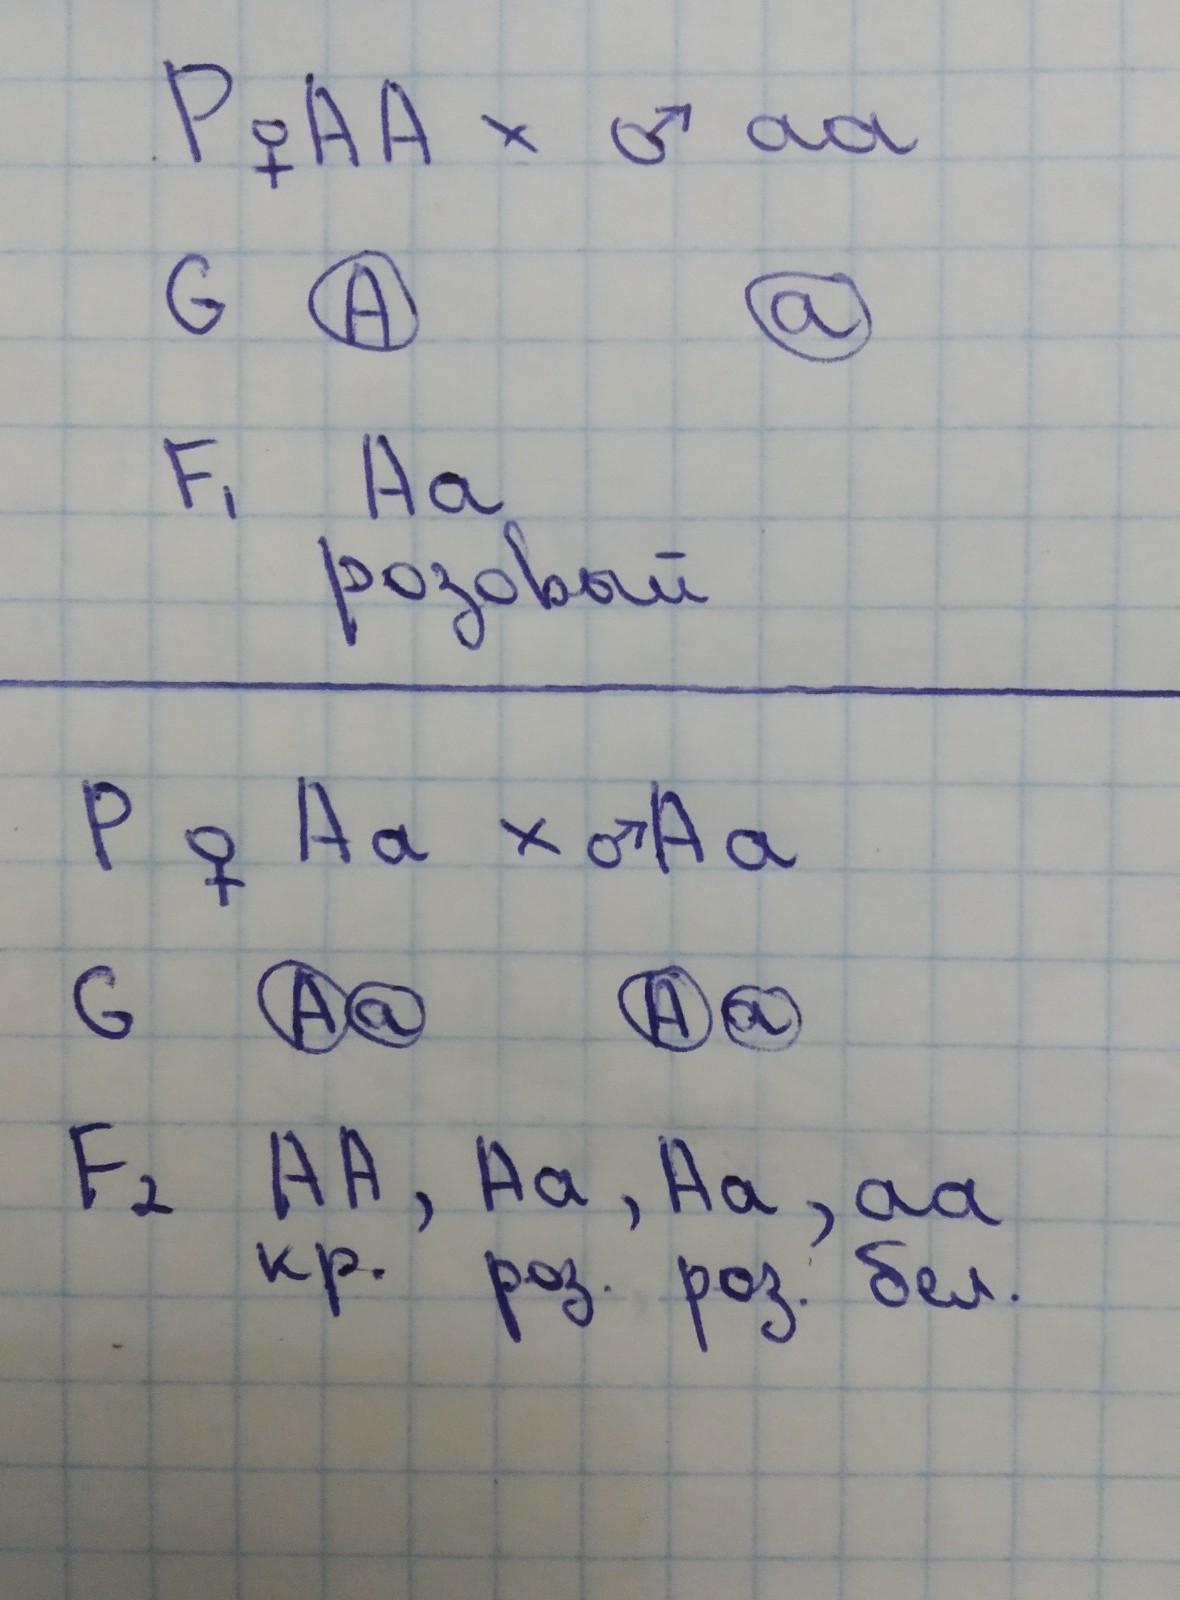 P ♀ AA × ♂ aa
G A a
F₁ Aa
розовый
P ♀ Aa × ♂ Aa
G A a A a
F₂ AA, Aa, Aa, aa
кр. роз. роз. бел.